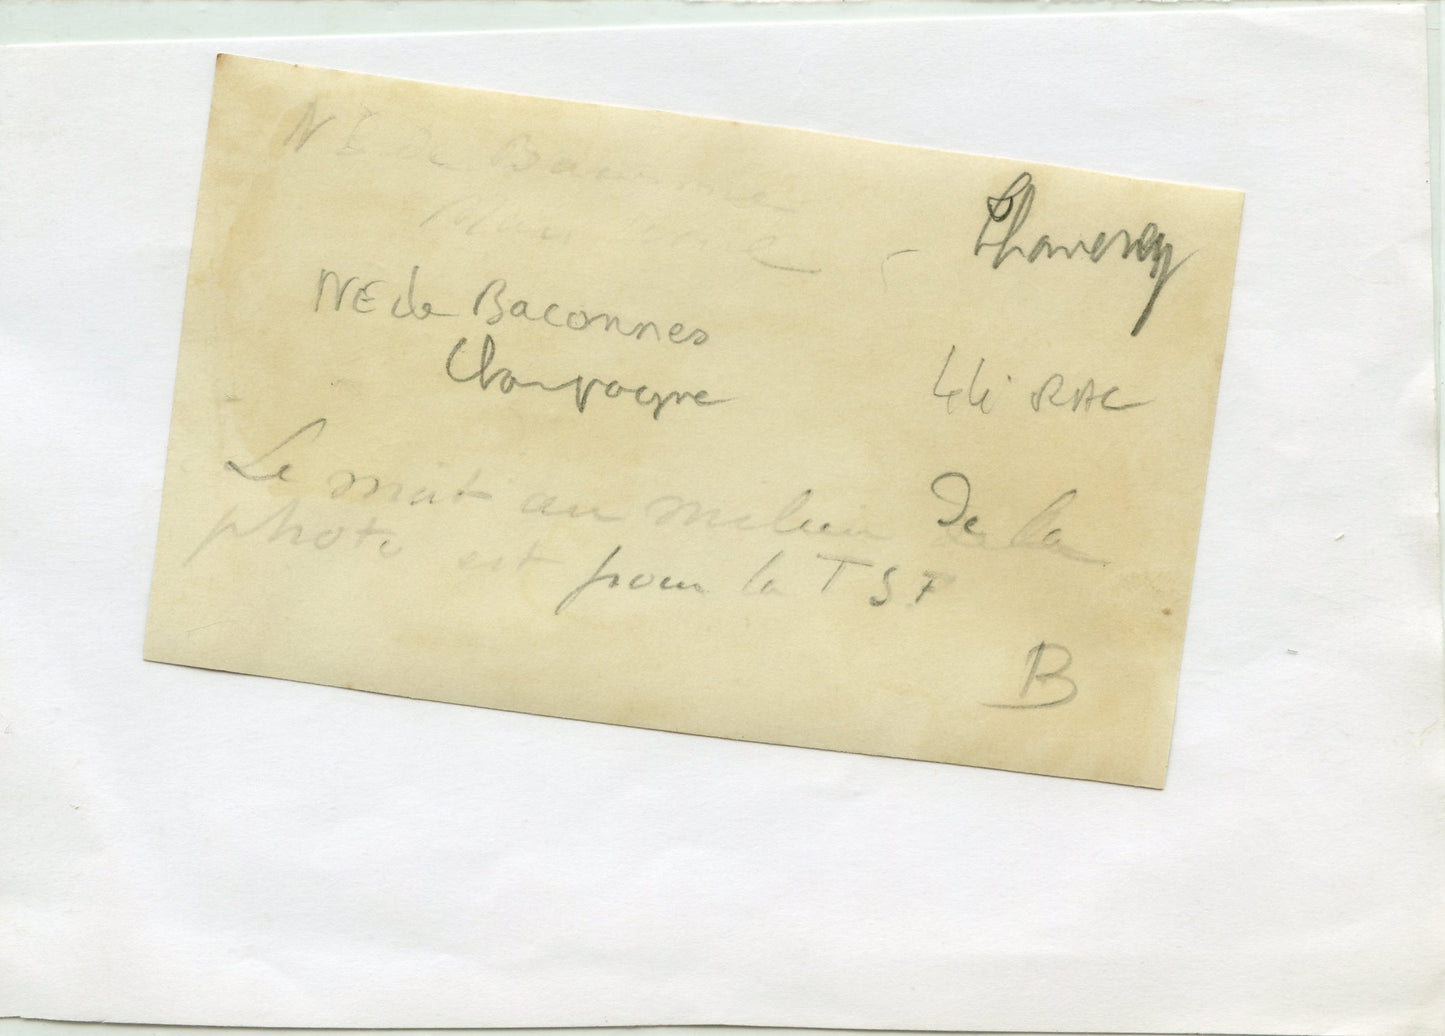 NE de Baconnes
NE de Baconnes
Champagne
44 RAC
Le mât au milieu de la
photo est pour la TSF
B